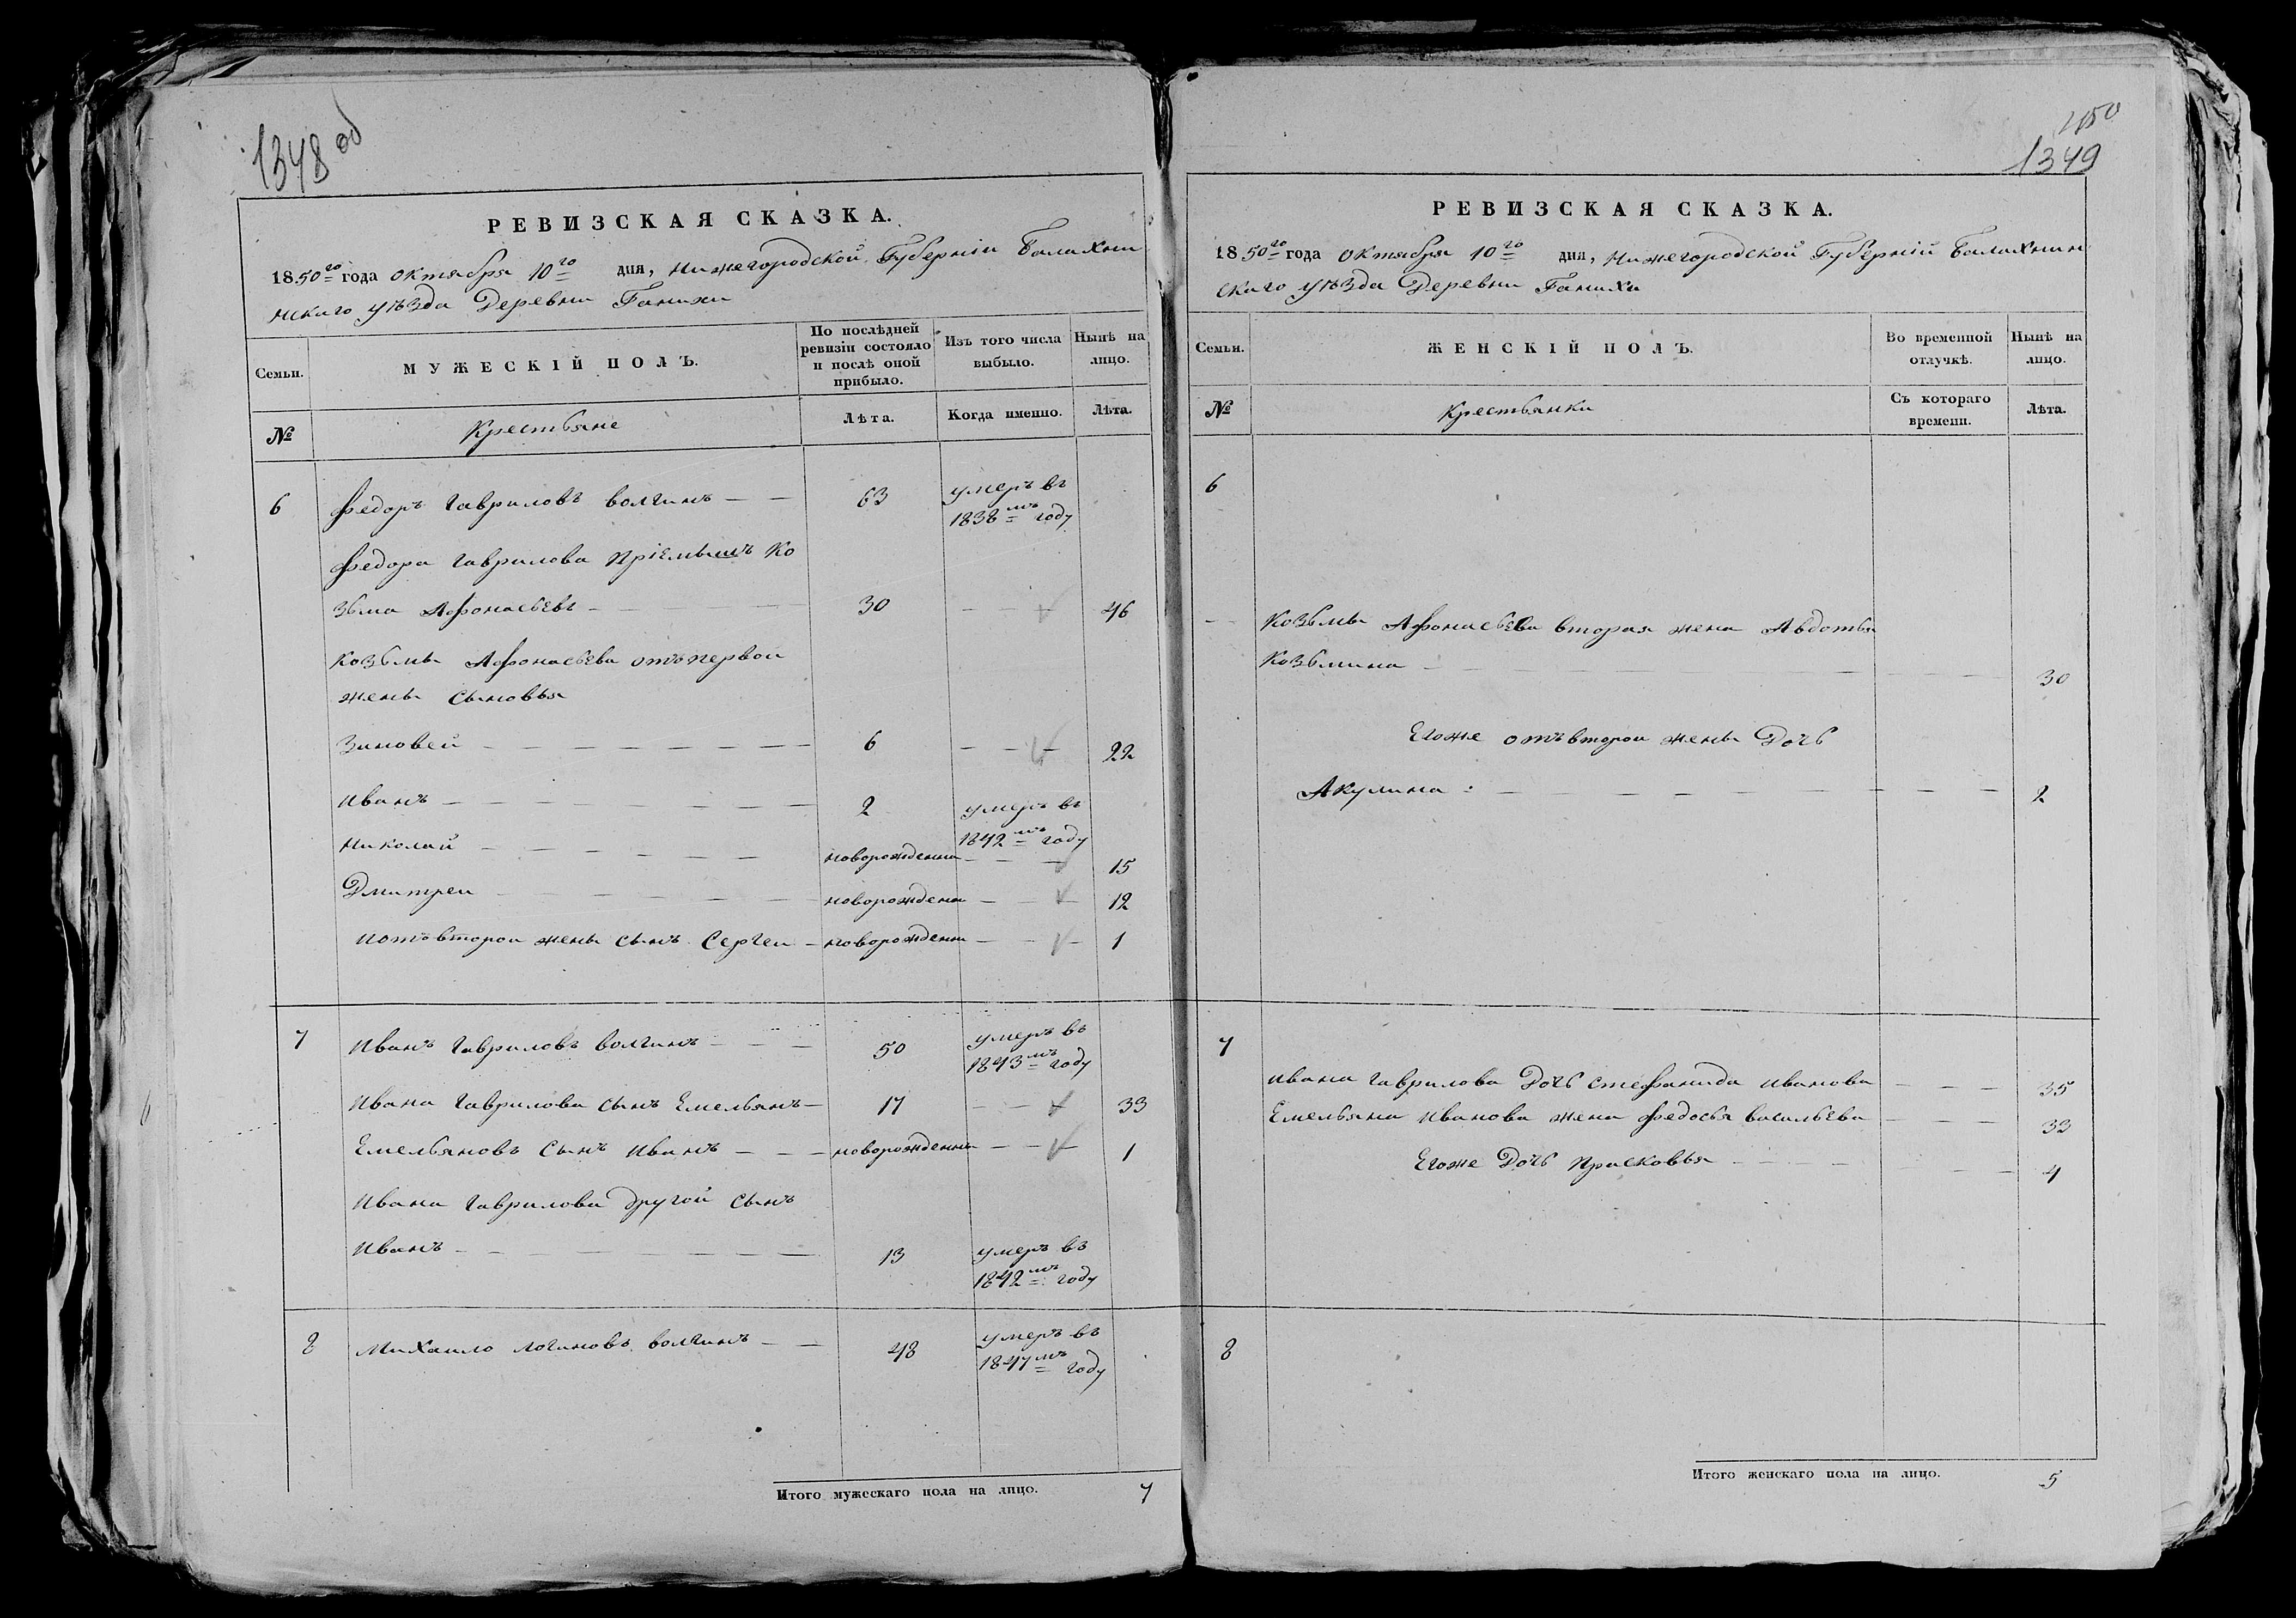 1348 об
РЕВИЗСКАЯ СКАЗКА.
1850го года октября 10го дня, Нижегородской Губерніи Балахни
нскаго уѣзда Деревни Ганихи
Семьи.
МУЖЕСКІЙ ПОЛЪ.
По послѣдней ревизіи состояло и послѣ оной прибыло.
Изъ того числа выбыло.
Нынѣ на лицо.
№
Крестьяне
Лѣта.
Когда именно.
Лѣта.
6 Федоръ Гавриловъ Волгинъ — — 63 умеръ въ
1838мъ году
Федора Гаврилова пріемышъ Ко
зьма Афонасьевъ — — 30 — — 46
Козьмы Афонасьева отъ первой
жены сыновья
Зиновей — — — — — — — 6 — — — 22
Иванъ — — — — — — — 2 умеръ въ
1842мъ году
Николай — — — — — — новорожденны — — — 15
Дмитреи — — — — — — новорождены — — — 12
и отъ второи жены сынъ Сергеи — новорожденны — — — 1
7 Иванъ Гавриловъ Волгинъ — — — 50 умеръ въ
1843мъ году
Ивана Гаврилова сынъ Емельянъ — 17 — — 33
Емельяновъ сынъ Иванъ — — — новорожденны — — — 1
Ивана Гаврилова другой сынъ
Иванъ — — — — — — — 13 умеръ въ
1842мъ году
8 Михаило Логиновъ Волгинъ — — 48 умеръ въ
1847мъ году
Итого мужескаго пола на лицо. 7
450
1349
РЕВИЗСКАЯ СКАЗКА.
1850го года октября 10го дня, Нижегородской Губерній Балахнин
скаго уѣзда Деревни Ганихи
Семьи.
ЖЕНСКІЙ ПОЛЪ.
Во временной отлучкѣ.
Нынѣ на лицо.
№
Крестьянки
Съ котораго времени.
Лѣта.
6
— Козьмы Афонасьева вторая жена Авдотья
Козьмина — — — — — — — — — 30
Егоже отъ второи жены Дочь
Акулина : — — — — — — — — 2
7
Ивана Гаврилова Дочь Стефанида Иванова — — — 35
Емельяна Иванова жена Федосья Васильева — — — 33
Егоже Дочь Прасковья — — — — — 4
8
Итого женскаго пола на лицо. 5